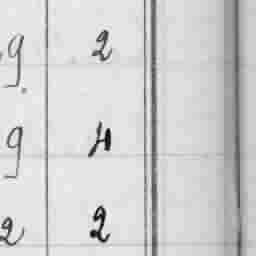 9 2
9 4
2 2